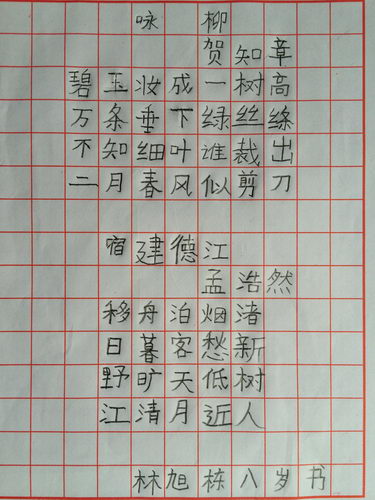 咏柳
贺知章
碧玉妆成一树高
万条垂下绿丝绦
不知细叶谁裁出
二月春风似剪刀
宿建德江
孟浩然
移舟泊烟渚
日暮客愁新
野旷天低树
江清月近人
林旭栋八岁书